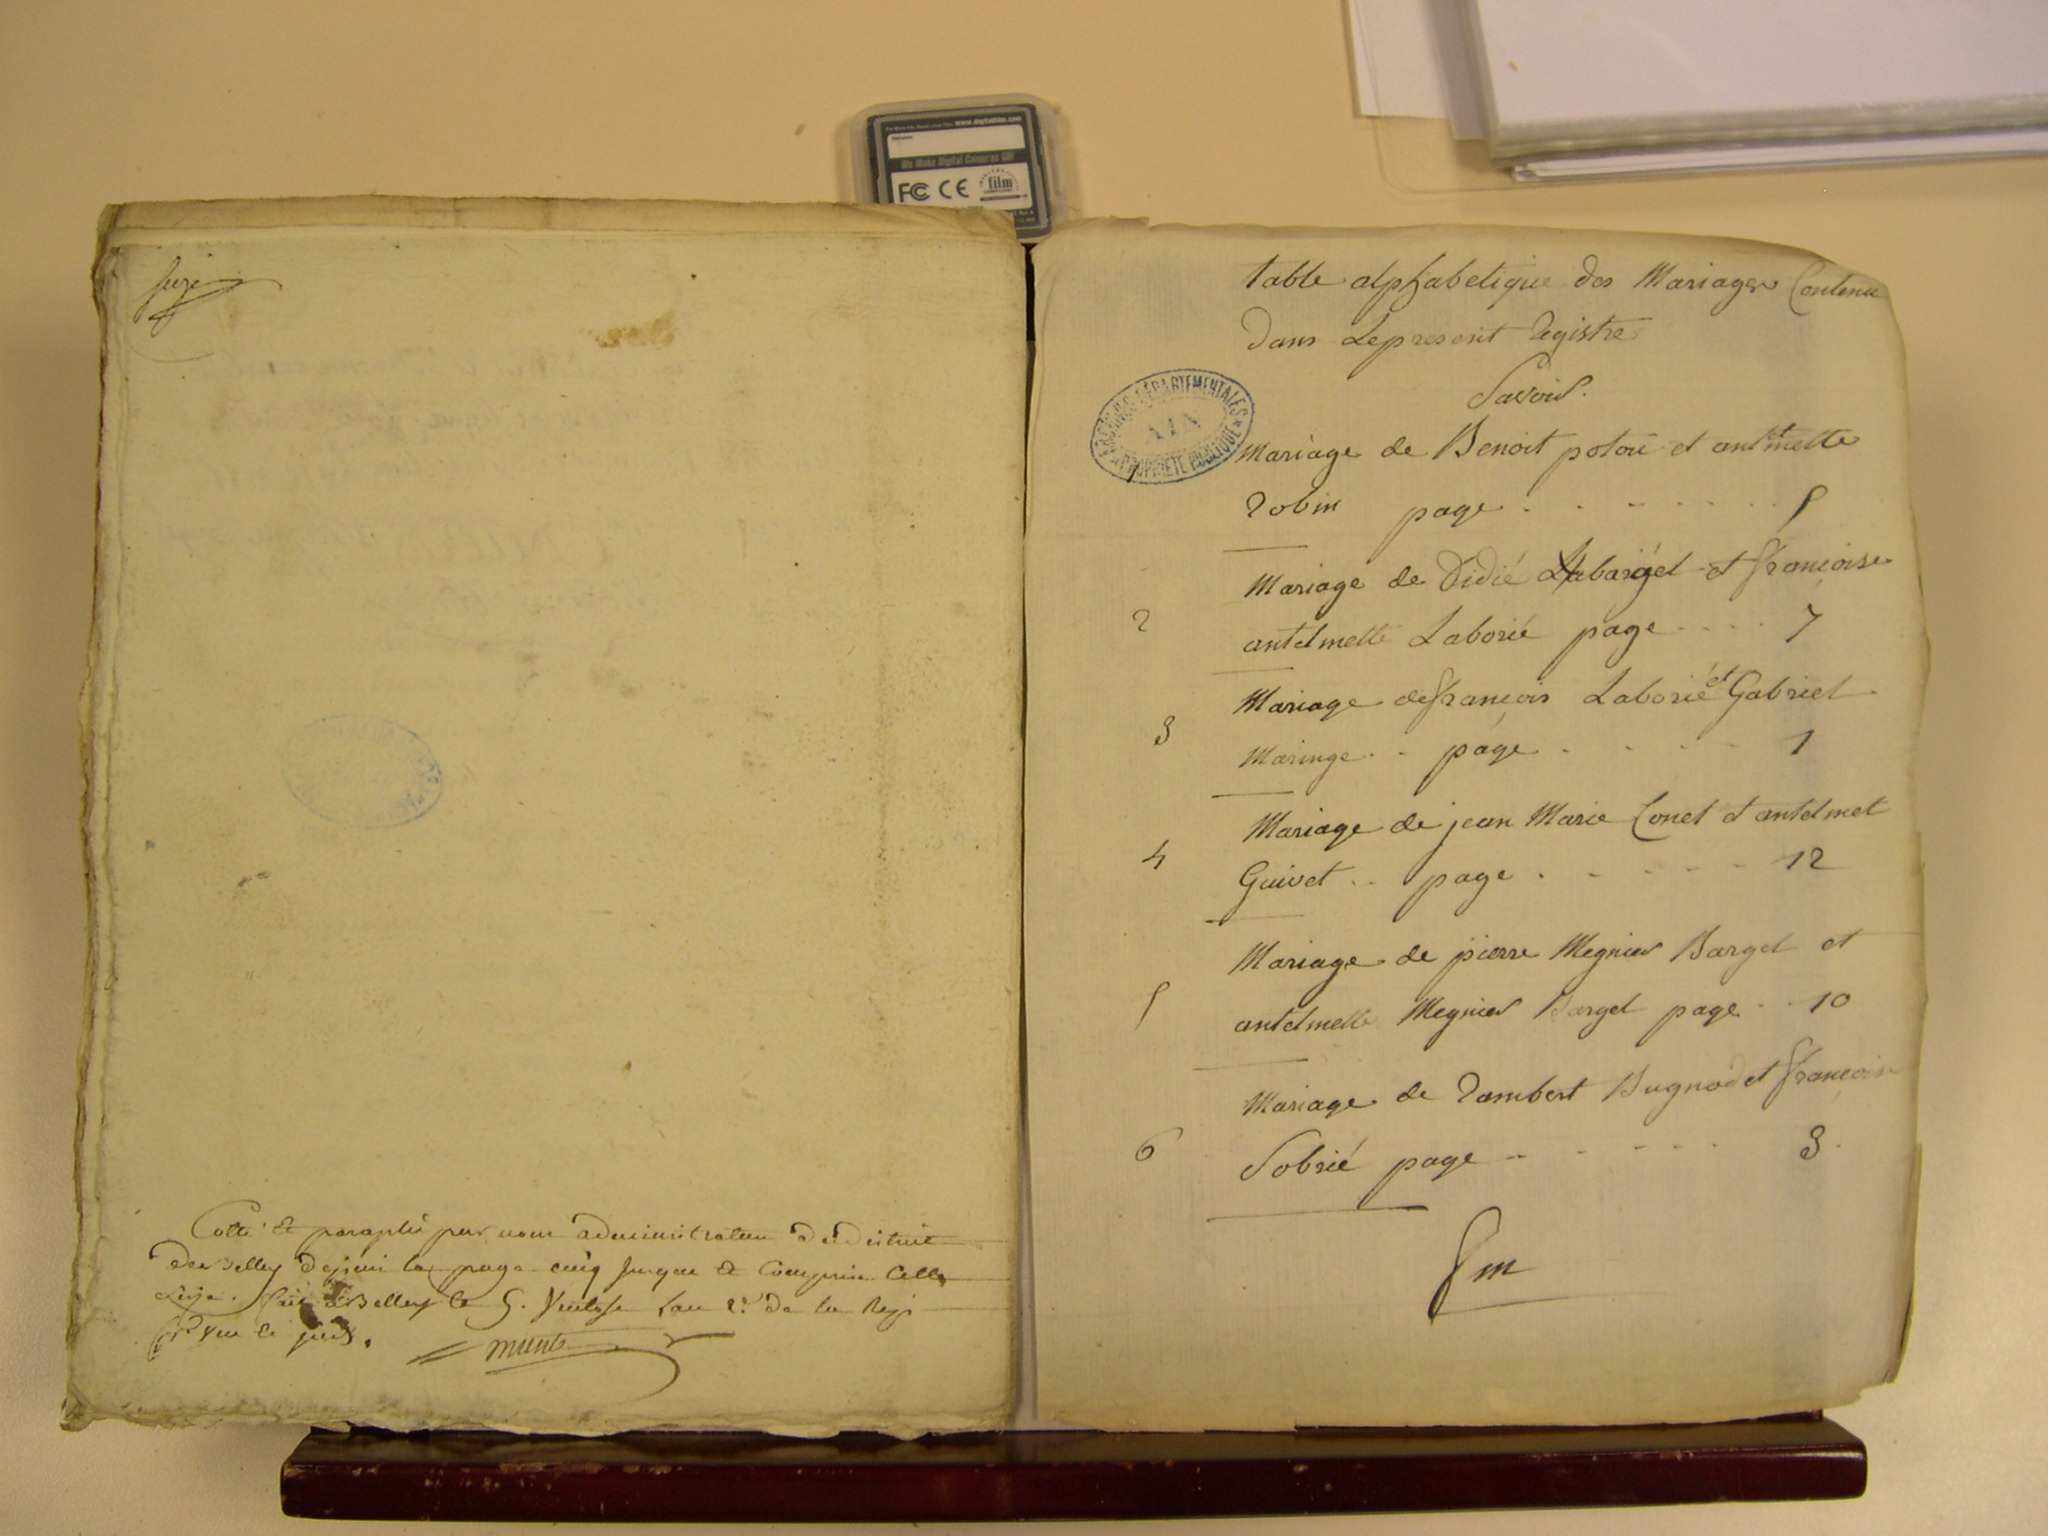 www.digitalfilm.com
We Make Digital Cameras GO!
FC CE film
seize
Cotté et paraphé par nous administrateur du district
de Belley depuis la page cinq jusque et comprise celle
seize. fait à Belley le 5. Ventose l'an 2.e de la Rep.
munet
table alphabetique des Mariages Contenu
Dans Lepresent registre
Savoir.
ARCHIVES DÉPARTEMENTALES
AIN
PROPRIÉTÉ PUBLIQUE
1 Mariage de Benoit potoü et antelmette
robin page . . . . . . 5
Mariage de Didié Labargel et françoise
2 antelmette Laborié page . . . . 7
Mariage de françois Laborié et Gabriel
3 Maringe . . page . . . . . 1
Mariage de jean Marie Conet et antelmet
4 Guivet . . page . . . . . 12
Mariage de pierre Megnier Barget et
5 antelmette Megnier Barget page . . 10
Mariage de rambert Bugnod et françoise
6 Sobrié page . . . . . 3.
fin